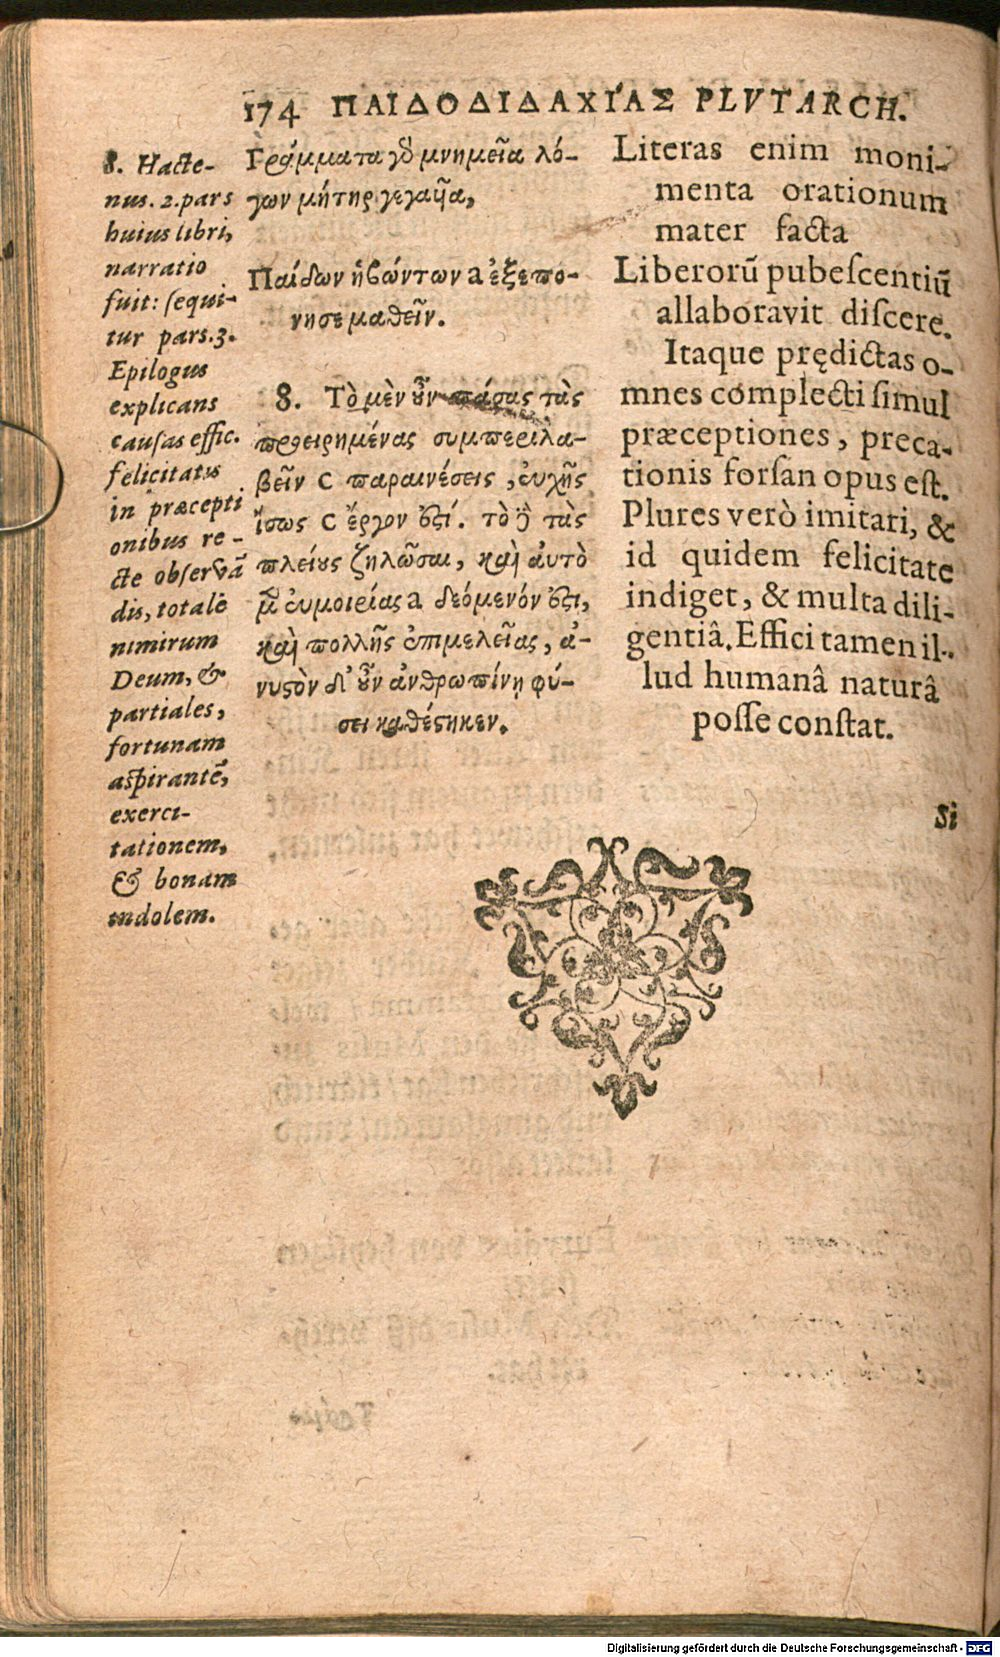 174 ΠΑΙΔΟΔΙΔΑΧΊΑΣ PLVTARCH.
8. Hacte-
nus. 2. pars
huius libri,
narratio
fuit: ſequi-
tur pars. 3.
Epilogus
explicans
cauſas effic.
felicitatis
in præcepti
onibus re-
cte obſervā
dis, totalē
nimirum
Deum, &
partiales,
fortunam
aſpirantē,
exerci-
tationem,
& bonam
indolem.
Γράμματα γὸ μνημεῖα λό-
γων μήτηρ γεγαῦα,
Παίδων ἡβώντων a ἐξεπο-
νησε μαθεῖν.
8. Τὸ μὲν ȣ̓͂ν πάσας τὰς
προειρημένας συμπεριλα-
βεῖν c παραινέσεις, εὐχῆς
ἴσως c ἔργον ὅϛί. τὸ ȷ̀ τὰς
πλείȣς ζηλῶσαι, καὶ ἀυτὸ
μ̃ εὐμοιρίας a δεόμενόν ὅϛι,
καὶ πολλῆς ἐπιμελεῖας, ἀ-
νυϛὸν δ' ȣ̓͂ν ἀνθρωπίνῃ φύ-
σει καθέϛηκεν.
Literas enim moni-
menta orationum
mater facta
Liberorū pubeſcentiū
allaboravit diſcere.
Itaque prędictas o-
mnes complecti ſimul
præceptiones, preca-
tionis forſan opus eſt.
Plures verò imitari, &
id quidem felicitate
indiget, & multa dili-
gentiâ. Effici tamen il-
lud humanâ naturâ
poſſe conſtat.
Si
Digitalisierung gefördert durch die Deutsche Forschungsgemeinschaft - DFG